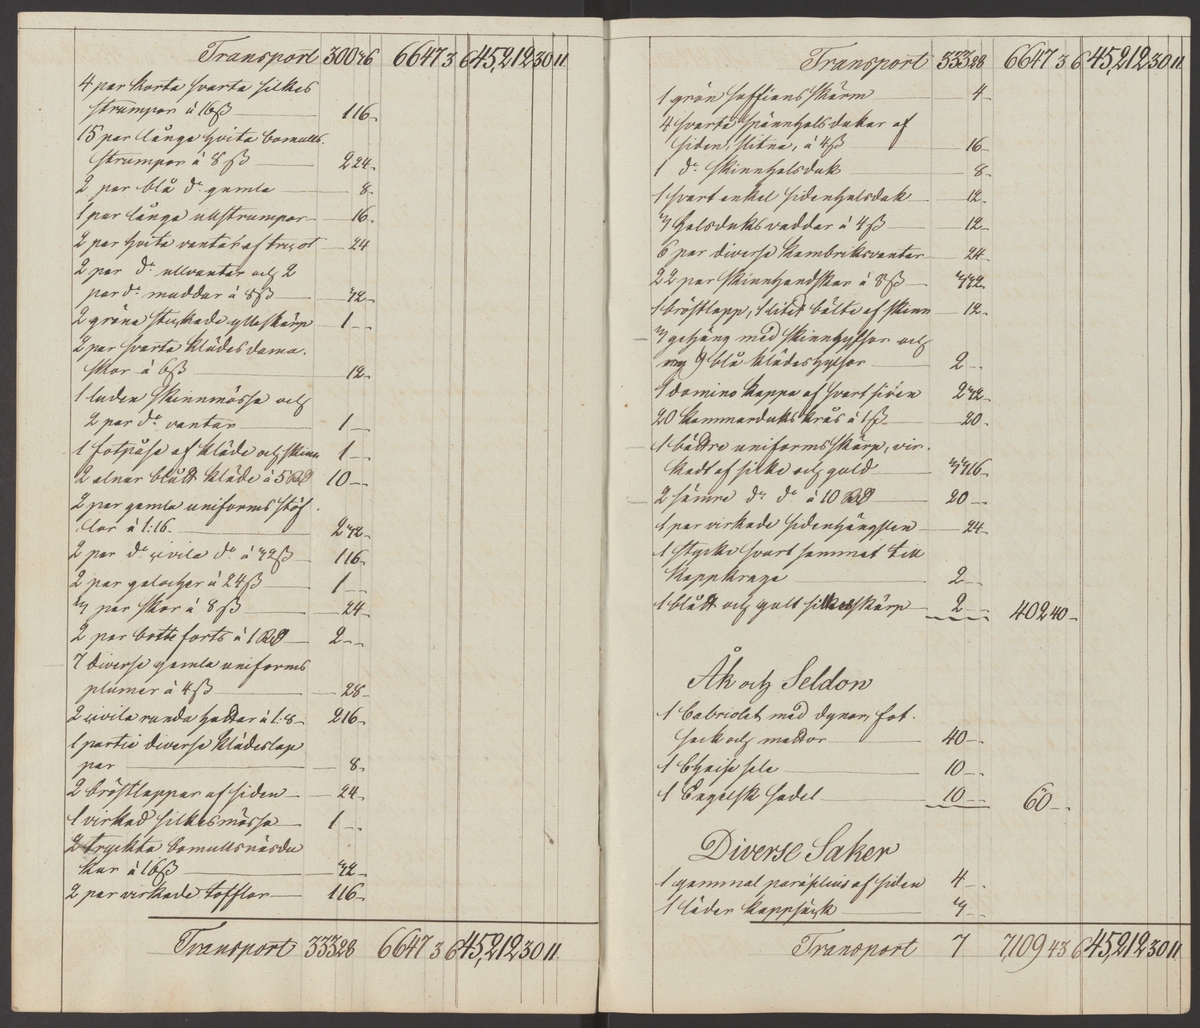 Transport 300 36 6647 3 6 45,212 30 11
4 par korta svarta silkes
strumpor à 16ß 1 16
15 par långa hvita bomulls
strumpor à 8 ß 2 24
2 par blå do gamla 8
1 par långa ullstrumpor 16
2 par hvita vantar af tricot 24
2 par do ullvantar och 2
par do muddar à 8ß 32
2 gröna stickade ylleskärp 1
2 par svarta klädes dama
skor à 6ß 12
1 luden skinnmössa och
2 par do vantar 1
1 fotpåse af kläde och skinn 1
2 alnar blått kläde à 5 RD 10
2 par gamla uniforms stöf
lar à 1:16 2 32
2 par do civila do à 32ß 1 16
2 par galocher à 24ß 1
3 par skor à 8 ß 24
2 par bottforts à 1 RD 2
7 diverse gamla uniforms
plumer à 4ß 28
2 civila runda hattar à 1:8 2 16
1 partie diverse klädeslap
par 8
2 bröstlappar af siden 24
1 virkad silkesmössa 1
2 tryckta bomullsnäsdu
kar à 16ß 32
2 par virkade tofflor 1 16
Transport 333 28 6647 3 6 45,212 30 11
Transport 333 28 6647 3 6 45,212 30 11
1 grön saffiansskärm 4
4 svarta spännhalsdukar af
siden, slitna, à 4ß 16
1 do skinnhalsduk 8
1 svart enkel sidenhalsduk 12
3 halsduksvaddar à 4ß 12
6 par diverse kambriksvantar 24
22 par skinnhandskar à 8ß 3 32
1 bröstlapp, 1 litet bälte af skinn 12
3 gehäng med skinnhylsor och
blå klädeshylsor 2
1 domino kappa af svart siden 2 32
20 kammarduks krås à 1ß 20
1 bättre uniformsskärp, vir
kadt af silke och guld 33 16
2 sämre do do à 10 RD 20
1 par virkade sidenhängslen 24
1 stycke svart sammet till
kappkrage 2
1 blått och gult silkesskärp 2 402 40
Åk och Seldon
1 Cabriolet med dynor, fot
sack och mattor 40
1 Chaise sele 10
1 Engelsk sadel 10 60
Diverse Saker
1 gammal paraplui af siden 4
1 läder kappsäck 3
Transport 7 7,109 43 6 45,212 30 11